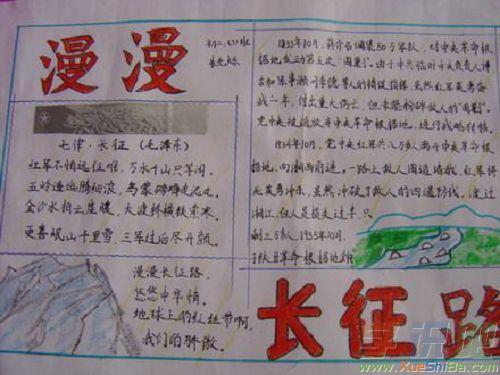 漫漫
七律·长征（毛泽东）
红军不怕远征难，万水千山只等闲。
五岭逶迤腾细浪，乌蒙磅礴走泥丸。
金沙水拍云崖暖，大渡桥横铁索寒。
更喜岷山千里雪，三军过后尽开颜。
漫漫长征路，
悠悠中华情。
地球上的红
我们的骄傲。
1933年10月，蒋介石调集50万军队，对中央革命根
据地发动第五次"围剿"。由于中共临时中央负责人博
古和军事顾问李德等人的错误指挥，虽然红军英勇奋
战一年，付出重大伤亡，但未能粉碎敌人的"围剿"。
党中央被迫放弃中央革命根据地，进行战略转移。
1934年10月，党中央红军共八万多人
，向湘西前进。一路上敌人围追堵截，红军将
士英勇冲杀，虽然冲破了敌人的四道防线，渡过
湘江，但人员损失过半，只
剩三万多人。1935年10月，
长征路
www.XueShiBa.com